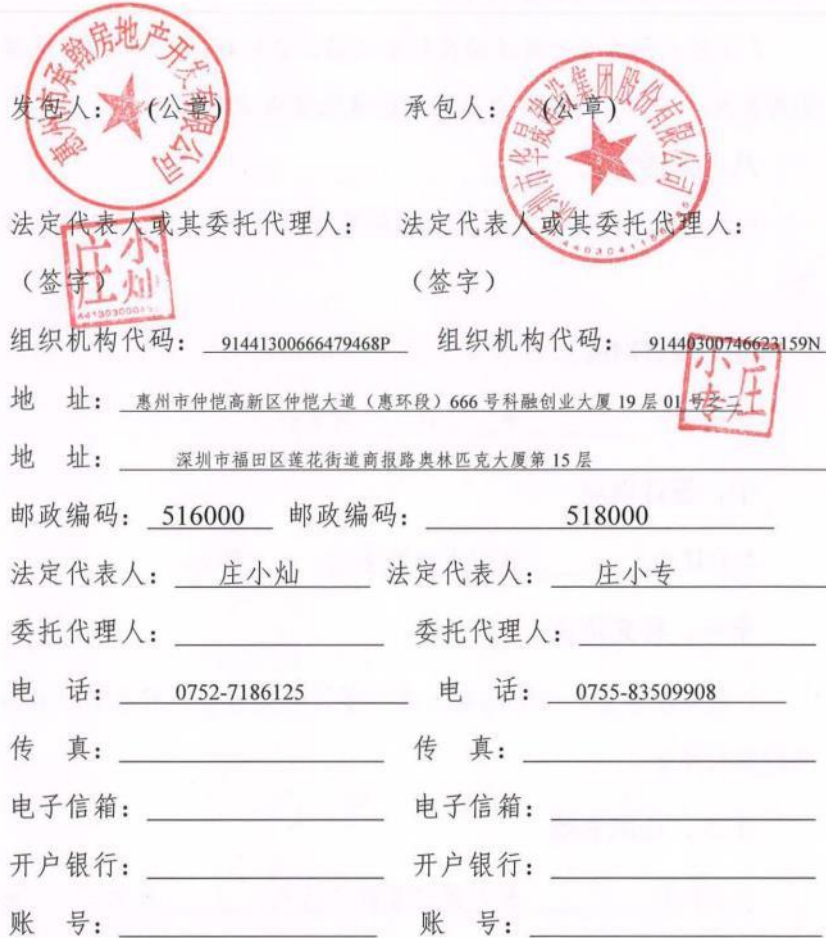 惠州市承翰房地产开发有限公司
深圳市华晟建设集团股份有限公司
发包人： (公章) 承包人： (公章)
法定代表人或其委托代理人： 法定代表人或其委托代理人：
（签字） （签字）
庄小灿
组织机构代码： 91441300666479468P 组织机构代码： 91440300746623159N
地 址： 惠州市仲恺高新区仲恺大道（惠环段）666 号科融创业大厦 19 层 01 号之二
庄小专
地 址： 深圳市福田区莲花街道商报路奥林匹克大厦第 15 层
邮政编码： 516000 邮政编码： 518000
法定代表人： 庄小灿 法定代表人： 庄小专
委托代理人： 委托代理人：
电 话： 0752-7186125 电 话： 0755-83509908
传 真： 传 真：
电子信箱： 电子信箱：
开户银行： 开户银行：
账 号： 账 号：